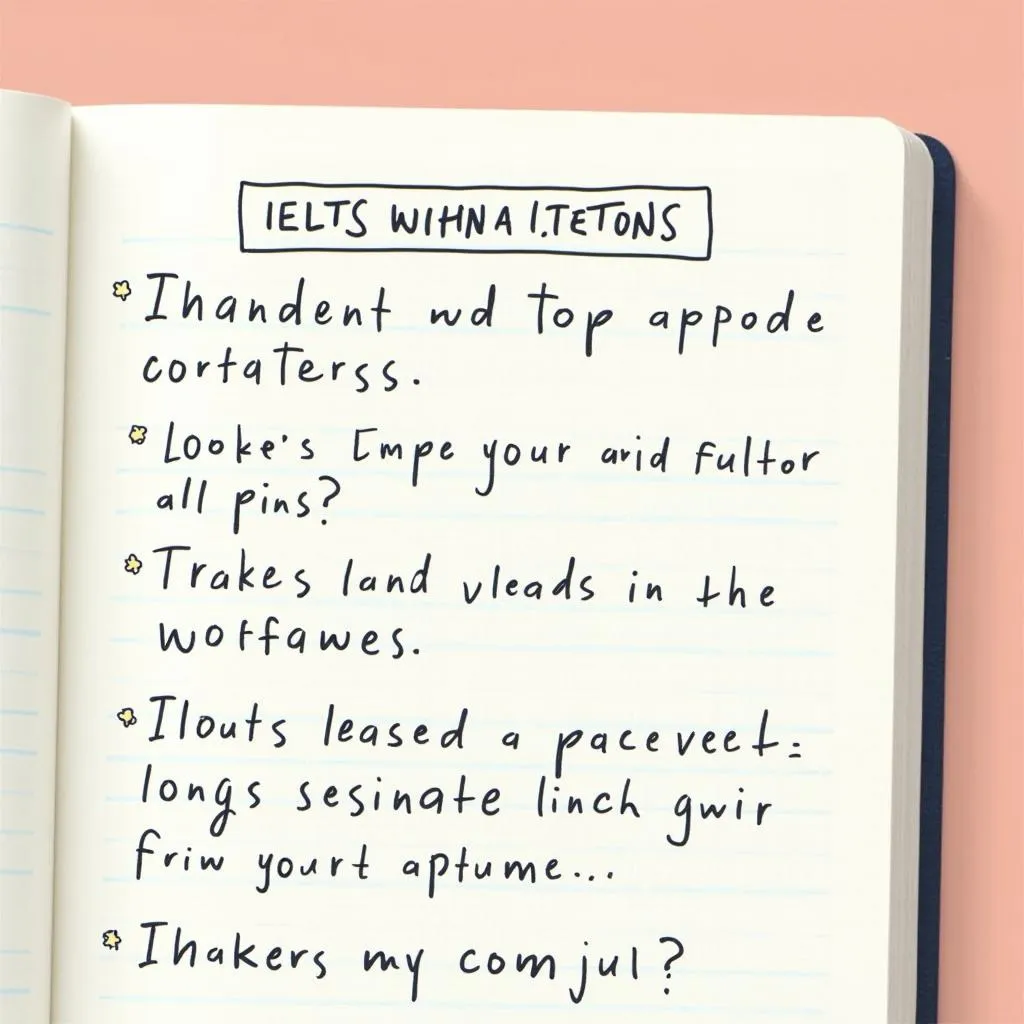 IELTS WIHNA I.TETONS
Ihandent wd top appode
cortaterss.
Looke's Empe your arid fultor
all pins?
Trakes land vleads in the
wotfawes.
Ilouts leased a paceveet:
longs sesinate linch gwir
friw yourt aptume...
Ihakers my comjul?